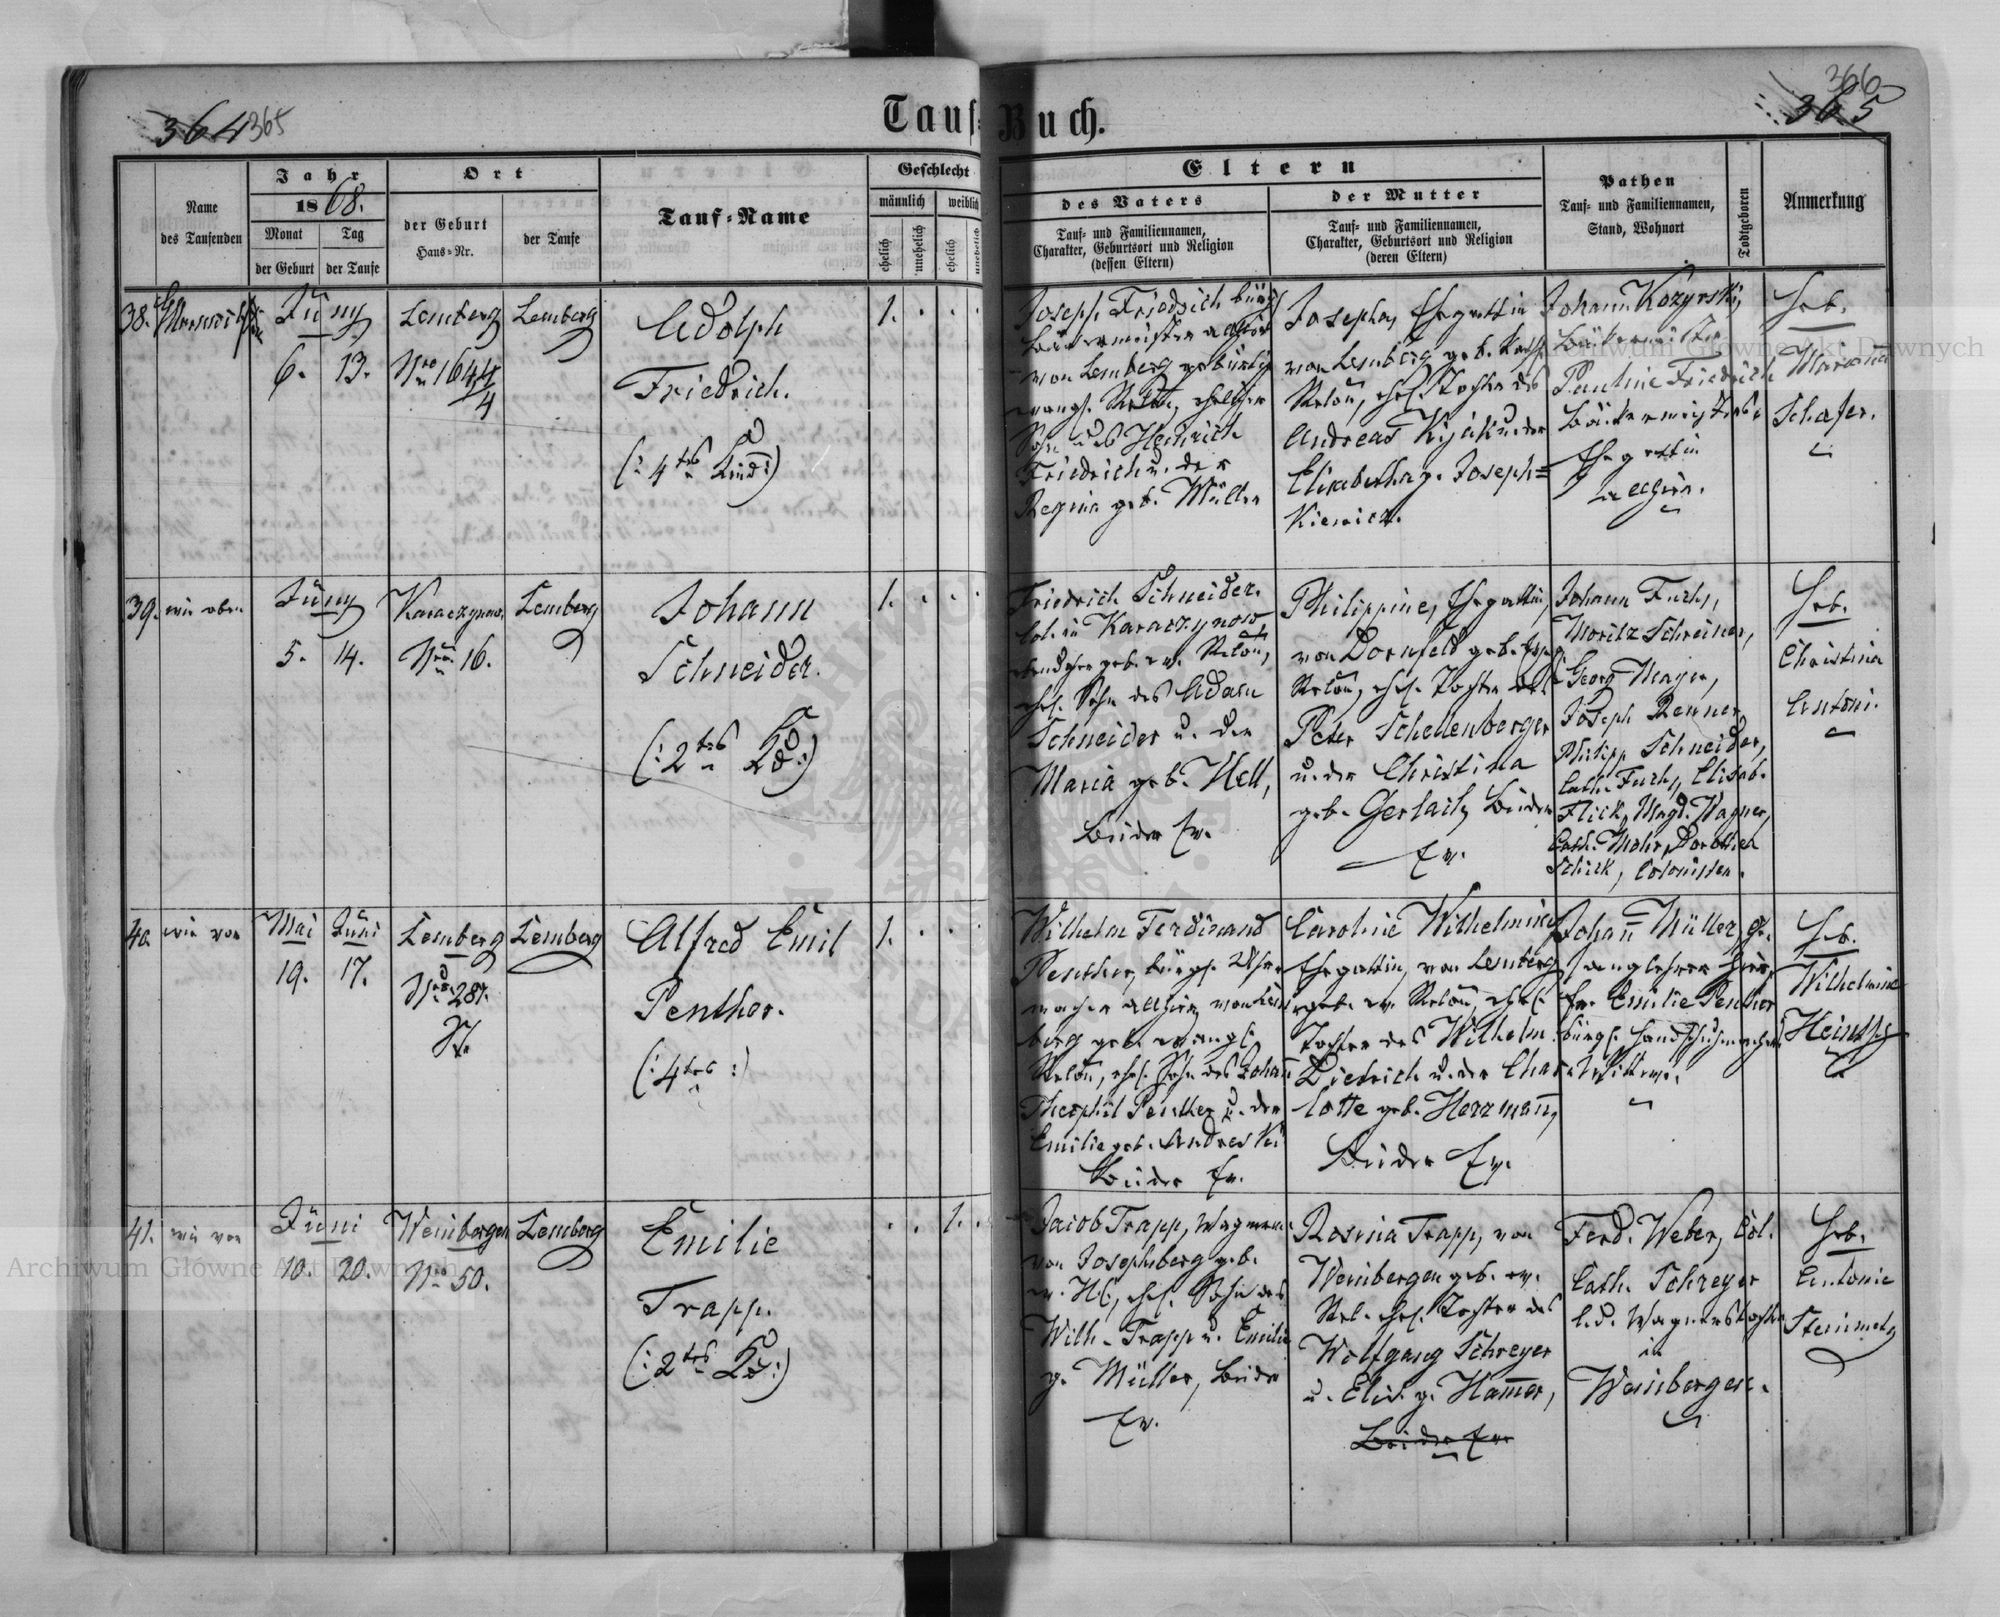 364 365
Tauf-Buch.
366
365
Name
des Taufenden
Jahr
1868.
Monat
der Geburt
Tag
der Taufe
Ort
der Geburt
Haus-Nr.
der Taufe
Tauf-Name
Geschlecht
männlich
weiblich
ehelich
unehelich
ehelich
unehelich
Eltern
des Vaters
Tauf- und Familiennamen,
Charakter, Geburtsort und Religion
(dessen Eltern)
der Mutter
Tauf- und Familiennamen,
Charakter, Geburtsort und Religion
(deren Eltern)
Pathen
Tauf- und Familiennamen,
Stand, Wohnort
Todtgeboren
Anmerkung
38.
Juny
6. 13.
Lemberg
Nro 164 4/4
Lemberg
Adolph
Friedrich.
(: 4tes Kind :)
1.
Joseph Friedrich bürgl.
Bäckermeister allhier
von Lemberg gebürtig
evangl. Relon, ehelicher
Sohn des Heinrich
Friedrich u. der
Regina geb. Müller
Josepha, Ehegattin
von Lemberg geb. Kath.
Relon, ehel. Tochter des
Andreas Kijak u. der
Elisabetha g. Joseph=
Kiewicz.
Johann Kozyrski,
Bäckermeister
Pauline Friedrich
Bäckermeisters-
Ehegattin
allhier.
Heb.
Marianna
Schafer.
39. wie oben
Juny
5. 14.
Karaczynow
Nro. 16.
Lemberg
Johann
Schneider.
(: 2tes Kd :)
1.
Friedrich Schneider.
Col. in Karaczynow,
ebendaher geb. ev. Relon,
ehel. Sohn des Adam
Schneider u. der
Maria geb. Hell,
beide Ev.
Philippine, Ehegattin,
von Dornfeld geb.
Relon, ehel. Tochter des
Peter Schellenberger
u. der Christina
geb. Gerlach, beide
Ev.
Johann Fuchs,
Moritz Schreiner,
Georg Mayer,
Joseph Renner,
Philipp Schneider,
Cath. Fuchs, Elisab.
Flick, Magd. Wagner,
Cath. Mohr, Dorothea
Schick, Colonisten.
Heb.
Christina
Antoni.
40. wie vor
Mai Juni
19. 17.
Lemberg
Nro. 287.
Lemberg
Alfred Emil
Penther.
(: 4tes :)
1.
Wilhelm Ferdinand
Penther, bürgl. Uhr=
macher allhier, von Lem=
berg geb. evangl.
Relon, ehel. Sohn des Johann
Theophil Penther u. der
Emilie geb. Andreski
beide Ev.
Caroline Wilhelmine,
Ehegattin, von Lemberg
geb. ev. Relon, ehel.
Tochter des Wilhelm
Dietrich u. der Char=
lotte geb. Herrmann,
beide Ev.
Johann Müller, Ge=
sanglehrer hier,
Fr. Emilie Penther
bürgl. Handschuhmachers
Wittwe.
Heb.
Wilhelmine
41. wie vor
Juni
10. 20.
Weinbergen
Nro. 50.
Lemberg
Emilie
Trapp.
(: 2tes Kd :)
1.
Jacob Trapp, Wagner
von Josephsberg geb.
ev. HC, ehel. Sohn des
Wilh. Trapp u. Emilie
g. Müller, beide
Ev.
Rosina Trapp, von
Weinbergen geb. ev.
Rel. ehel. Tochter des
Wolfgang Schreyer
u. Elis. g. Hammer,
beide Ev.
Ferd. Weber, Col.
Cath. Schreyer
l. d. Wagnerstochter
in
Weinbergen.
Heb.
Antonie
Steinmetz
Archiwum Główne Akt Dawnych
Archiwum Główne Akt Dawnych